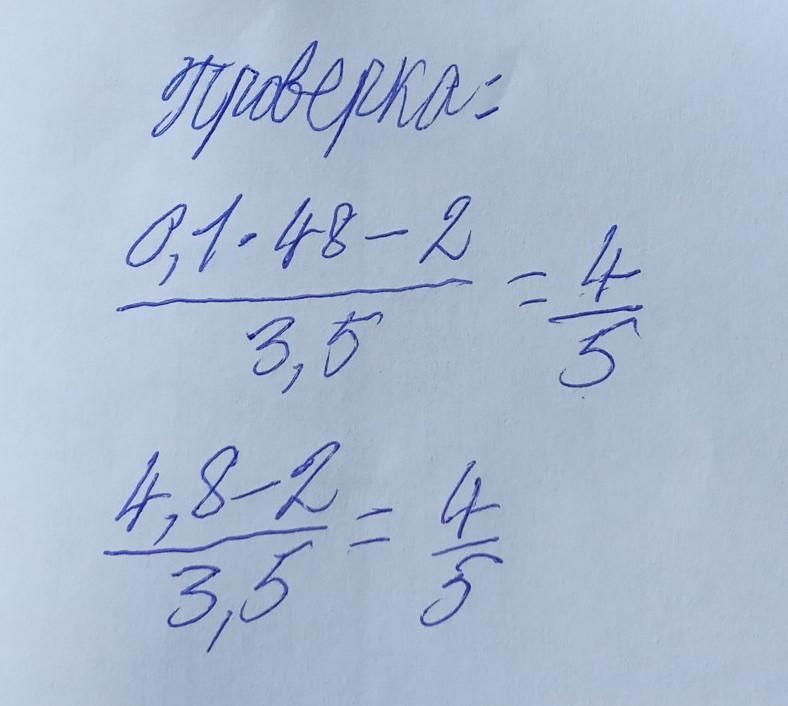 Проверка:
0,1·48-2
3,5
=
4
5
4,8-2
3,5
=
4
5